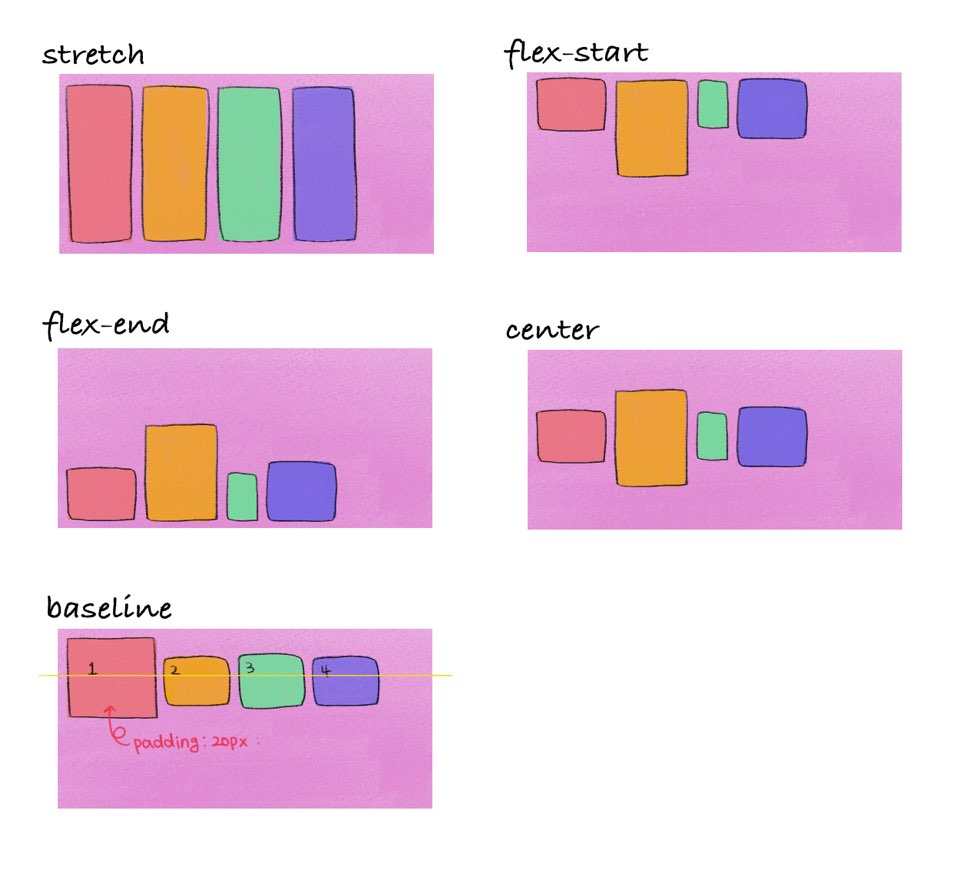 stretch
flex-start
flex-end
center
baseline
1
2
3
4
padding: 20px